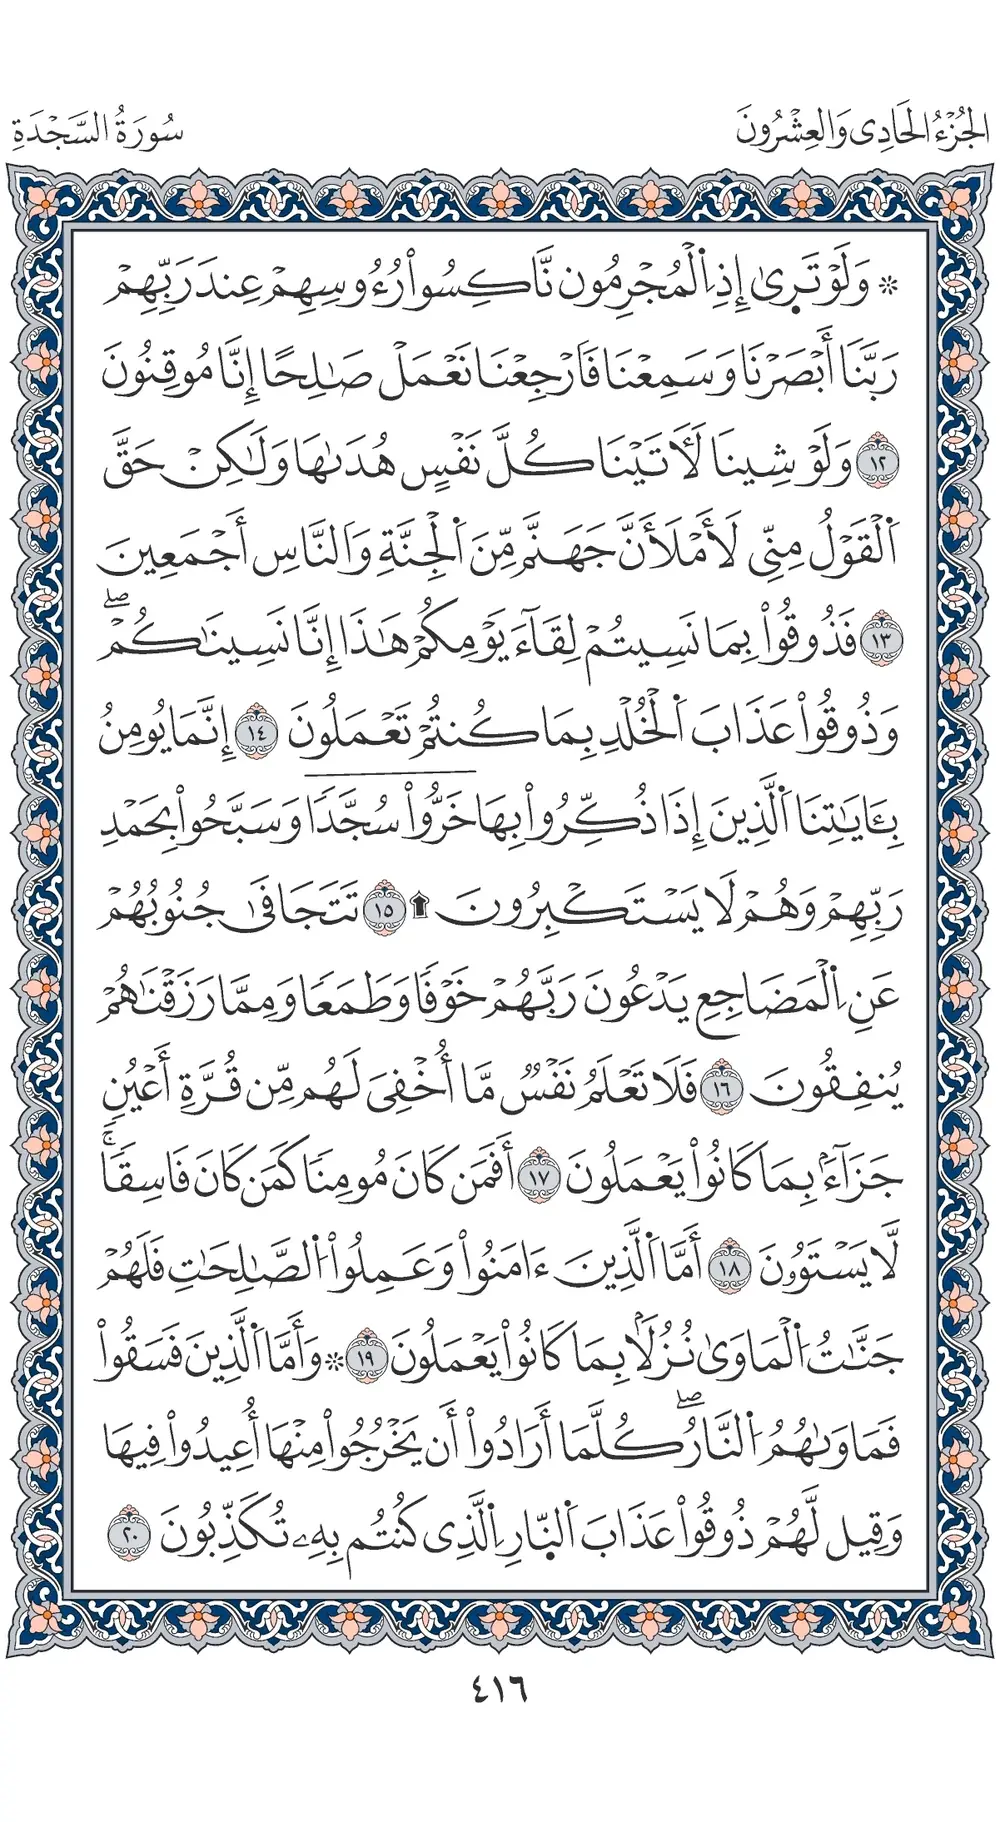 الجُزْءُ الحَادِى وَالعِشْرُونَ
سُورَةُ السَّجْدَةِ
۞ وَلَوْ تَرٜىٰ إِذِ اِ۬لْمُجْرِمُون نَّاكِسُوا۟ رُءُوسِهِمْ عِندَ رَبِّهِمْ
رَبَّنَا أَبْصَرْنَا وَسَمِعْنَا فَارْجِعْنَا نَعْمَلْ صَٰلِحًا إِنَّا مُوقِنُونَ
١٢ وَلَوْ شِينَا لَأٓتَيْنَا كُلَّ نَفْسٍ هُدَىٰهَا وَلَٰكِنْ حَقَّ
اَ۬لْقَوْلُ مِنِّى لَأَمْلَأَنَّ جَهَنَّم مِّنَ اَ۬لْجِنَّةِ وَالنَّاسِ أَجْمَعِينَ
١٣ فَذُوقُوا۟ بِمَا نَسِيتُمْ لِقَآءَ يَوْمِكُمْ هَٰذَا إِنَّا نَسِينَٰكُمْۖ
وَذُوقُوا۟ عَذَابَ اَ۬لْخُلْد بِمَا كُنتُمْ تَعْمَلُونَ ١٤ إِنَّمَا يُومِنُ
بِـَٔايَٰتِنَا اَ۬لَّذِينَ إِذَا ذُكِّرُوا۟ بِهَا خَرُّوا۟ سُجَّدًا وَسَبَّحُوا۟ بِحَمْدِ
رَبِّهِمْ وَهُمْ لَا يَسْتَكْبِرُونَ ۩ ١٥ تَتَجَافَىٰ جُنُوبُهُمْ
عَنِ اِ۬لْمَضَاجِعِ يَدْعُونَ رَبَّهُمْ خَوْفًا وَطَمَعًا وَمِمَّا رَزَقْنَٰهُمْ
يُنفِقُونَ ١٦ فَلَا تَعْلَمُ نَفْسٌ مَّا أُخْفِىَ لَهُم مِّن قُرَّةِ أَعْيُنٍ
جَزَآءًۢ بِمَا كَانُوا۟ يَعْمَلُونَ ١٧ أَفَمَن كَانَ مُومِنًا كَمَن كَانَ فَاسِقًاۚ
لَّا يَسْتَوُۥنَ ١٨ أَمَّا اَ۬لَّذِينَ ءَامَنُوا۟ وَعَمِلُوا۟ اُ۬لصَّٰلِحَٰتِ فَلَهُمْ
جَنَّٰتُ اُ۬لْمَاوَىٰ نُزُلًۢا بِمَا كَانُوا۟ يَعْمَلُونَ ١٩ ۞ وَأَمَّا اَ۬لَّذِينَ فَسَقُوا۟
فَمَاوَىٰهُمُ اُ۬لنَّارُۖ كُلَّمَا أَرَادُوا۟ أَن يَخْرُجُوا۟ مِنْهَا أُعِيدُوا۟ فِيهَا
وَقِيل لَّهُمْ ذُوقُوا۟ عَذَابَ اَ۬لنّٜارِ اِ۬لَّذِى كُنتُم بِهِۦ تُكَذِّبُونَ ٢٠
٤١٦